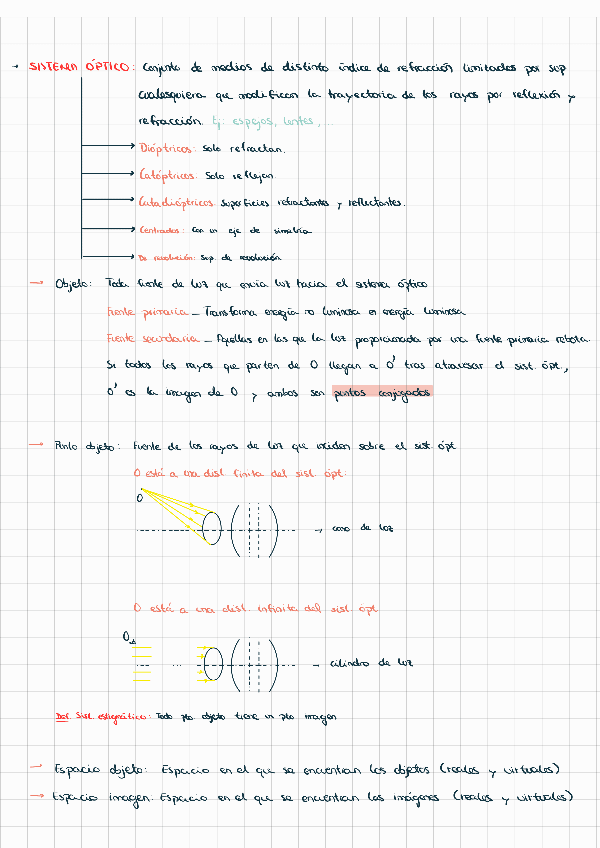 → SISTEMA ÓPTICO: Conjunto de medios de distinto índice de refracción limitados por sup
cualesquiera que modifican la trayectoria de los rayos por reflexión y
refracción. Ej: espejos, lentes, ...
Dióptricos: Solo refractan.
Catóptricos: Solo reflejan.
Catadióptricos: Superficies refractantes y reflectantes.
Centrados: Con un eje de simetría
De revolución: Sup. de revolución
→ Objeto: Toda fuente de luz que envia luz hacia el sistema óptico
Fuente primaria - Transforma energía no luminosa en energía luminosa
Fuente secundaria - Aquellas en las que la luz proporcionada por una fuente primaria rebota.
Si todos los rayos que parten de O llegan a O' tras atravesar el sist. ópt.,
O' es la imagen de O y ambos son puntos conjugados
→ Punto objeto: Fuente de los rayos de luz que inciden sobre el sist. ópt
O está a una dist. finita del sist. ópt.
O
→ cono de luz
O está a una dist. infinita del sist. ópt
O
...
→ cilindro de luz
Def. Sist. estigmático: Todo pto objeto tiene un pto imagen
→ Espacio objeto: Espacio en el que se encuentran los objetos (reales y virtuales)
→ Espacio imagen: Espacio en el que se encuentran las imágenes (reales y virtuales)